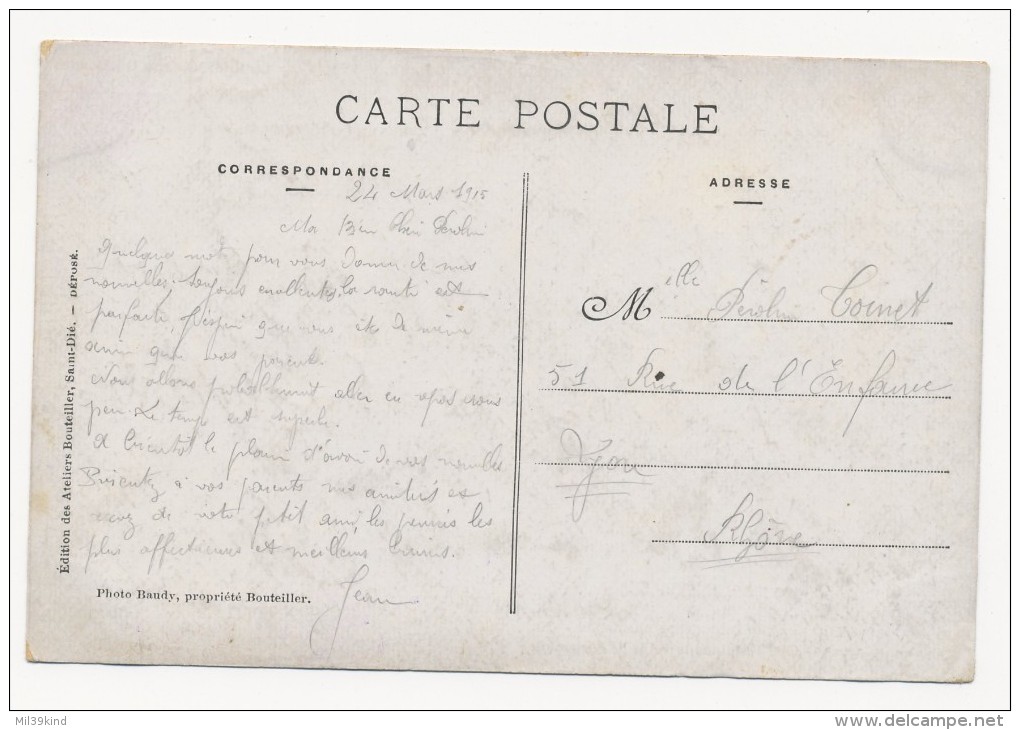 CARTE POSTALE
CORRESPONDANCE
24 Mars 1915
Ma Bien chère
Quelques mots pour vous donner de mes
nouvelles, toujours excellentes, la santé est
parfaite, j'espère que vous de même
ainsi que vos parents.
Nous allons probablement aller en repos sous
peu. Le temps est superbe.
A bientôt le plaisir d'avoir de vos nouvelles
Présentez à vos parents mes amitiés et
recevez de votre petit ami, les pensées les
plus affectueuses et meilleurs baisers.
Jean
Photo Baudy, propriété Bouteiller.
Édition des Ateliers Bouteiller, Saint-Dié. — DÉPOSÉ.
ADRESSE
Melle Coinet
51 Rue de l'Enfance
Lyon
Rhône
Mil39kind
www.delcampe.net